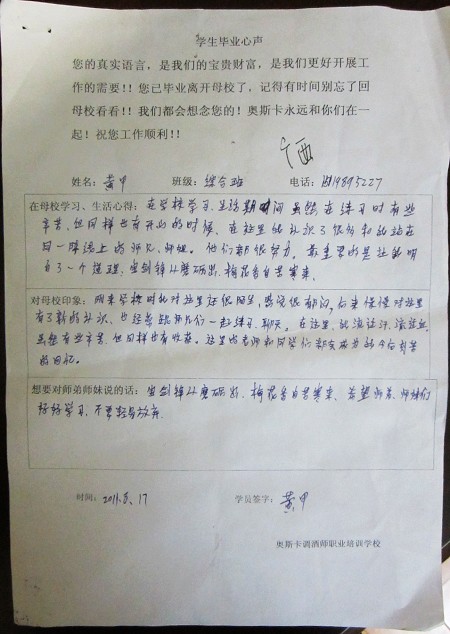 学生毕业心声
您的真实语言，是我们的宝贵财富，是我们更好开展工
作的需要！！您已毕业离开母校了，记得有时间别忘了回
母校看看！！我们都会想念您的！奥斯卡永远和你们在一
起！祝您工作顺利！！
广西
姓名：黄甲 班级：综合班 电话：
在母校学习、生活心得：在学校学习、生活期间虽然在练习时有些
辛苦，但同样也有开心的时候，在这里我认识了很多和我站在
同一阵线上的师兄、师姐。他们都很努力，最重要的是让我明
白了一个道理，宝剑锋从磨砺出，梅花香自苦寒来。
对母校印象：刚来学校时我对这里还很陌生，感觉很郁闷，后来慢慢对这里
有了新的认识，也经常跟师兄们一起练习、聊天。在这里，我流过汗，流过血，
虽然有些辛苦，但同样也有收获。这里的老师和同学们都会成为我今后
的回忆。
想要对师弟师妹说的话：宝剑锋从磨砺出，梅花香自苦寒来，希望师弟、师妹们
好好学习，不要轻易放弃。
时间：2011.8.17 学员签字：黄甲
奥斯卡调酒师职业培训学校